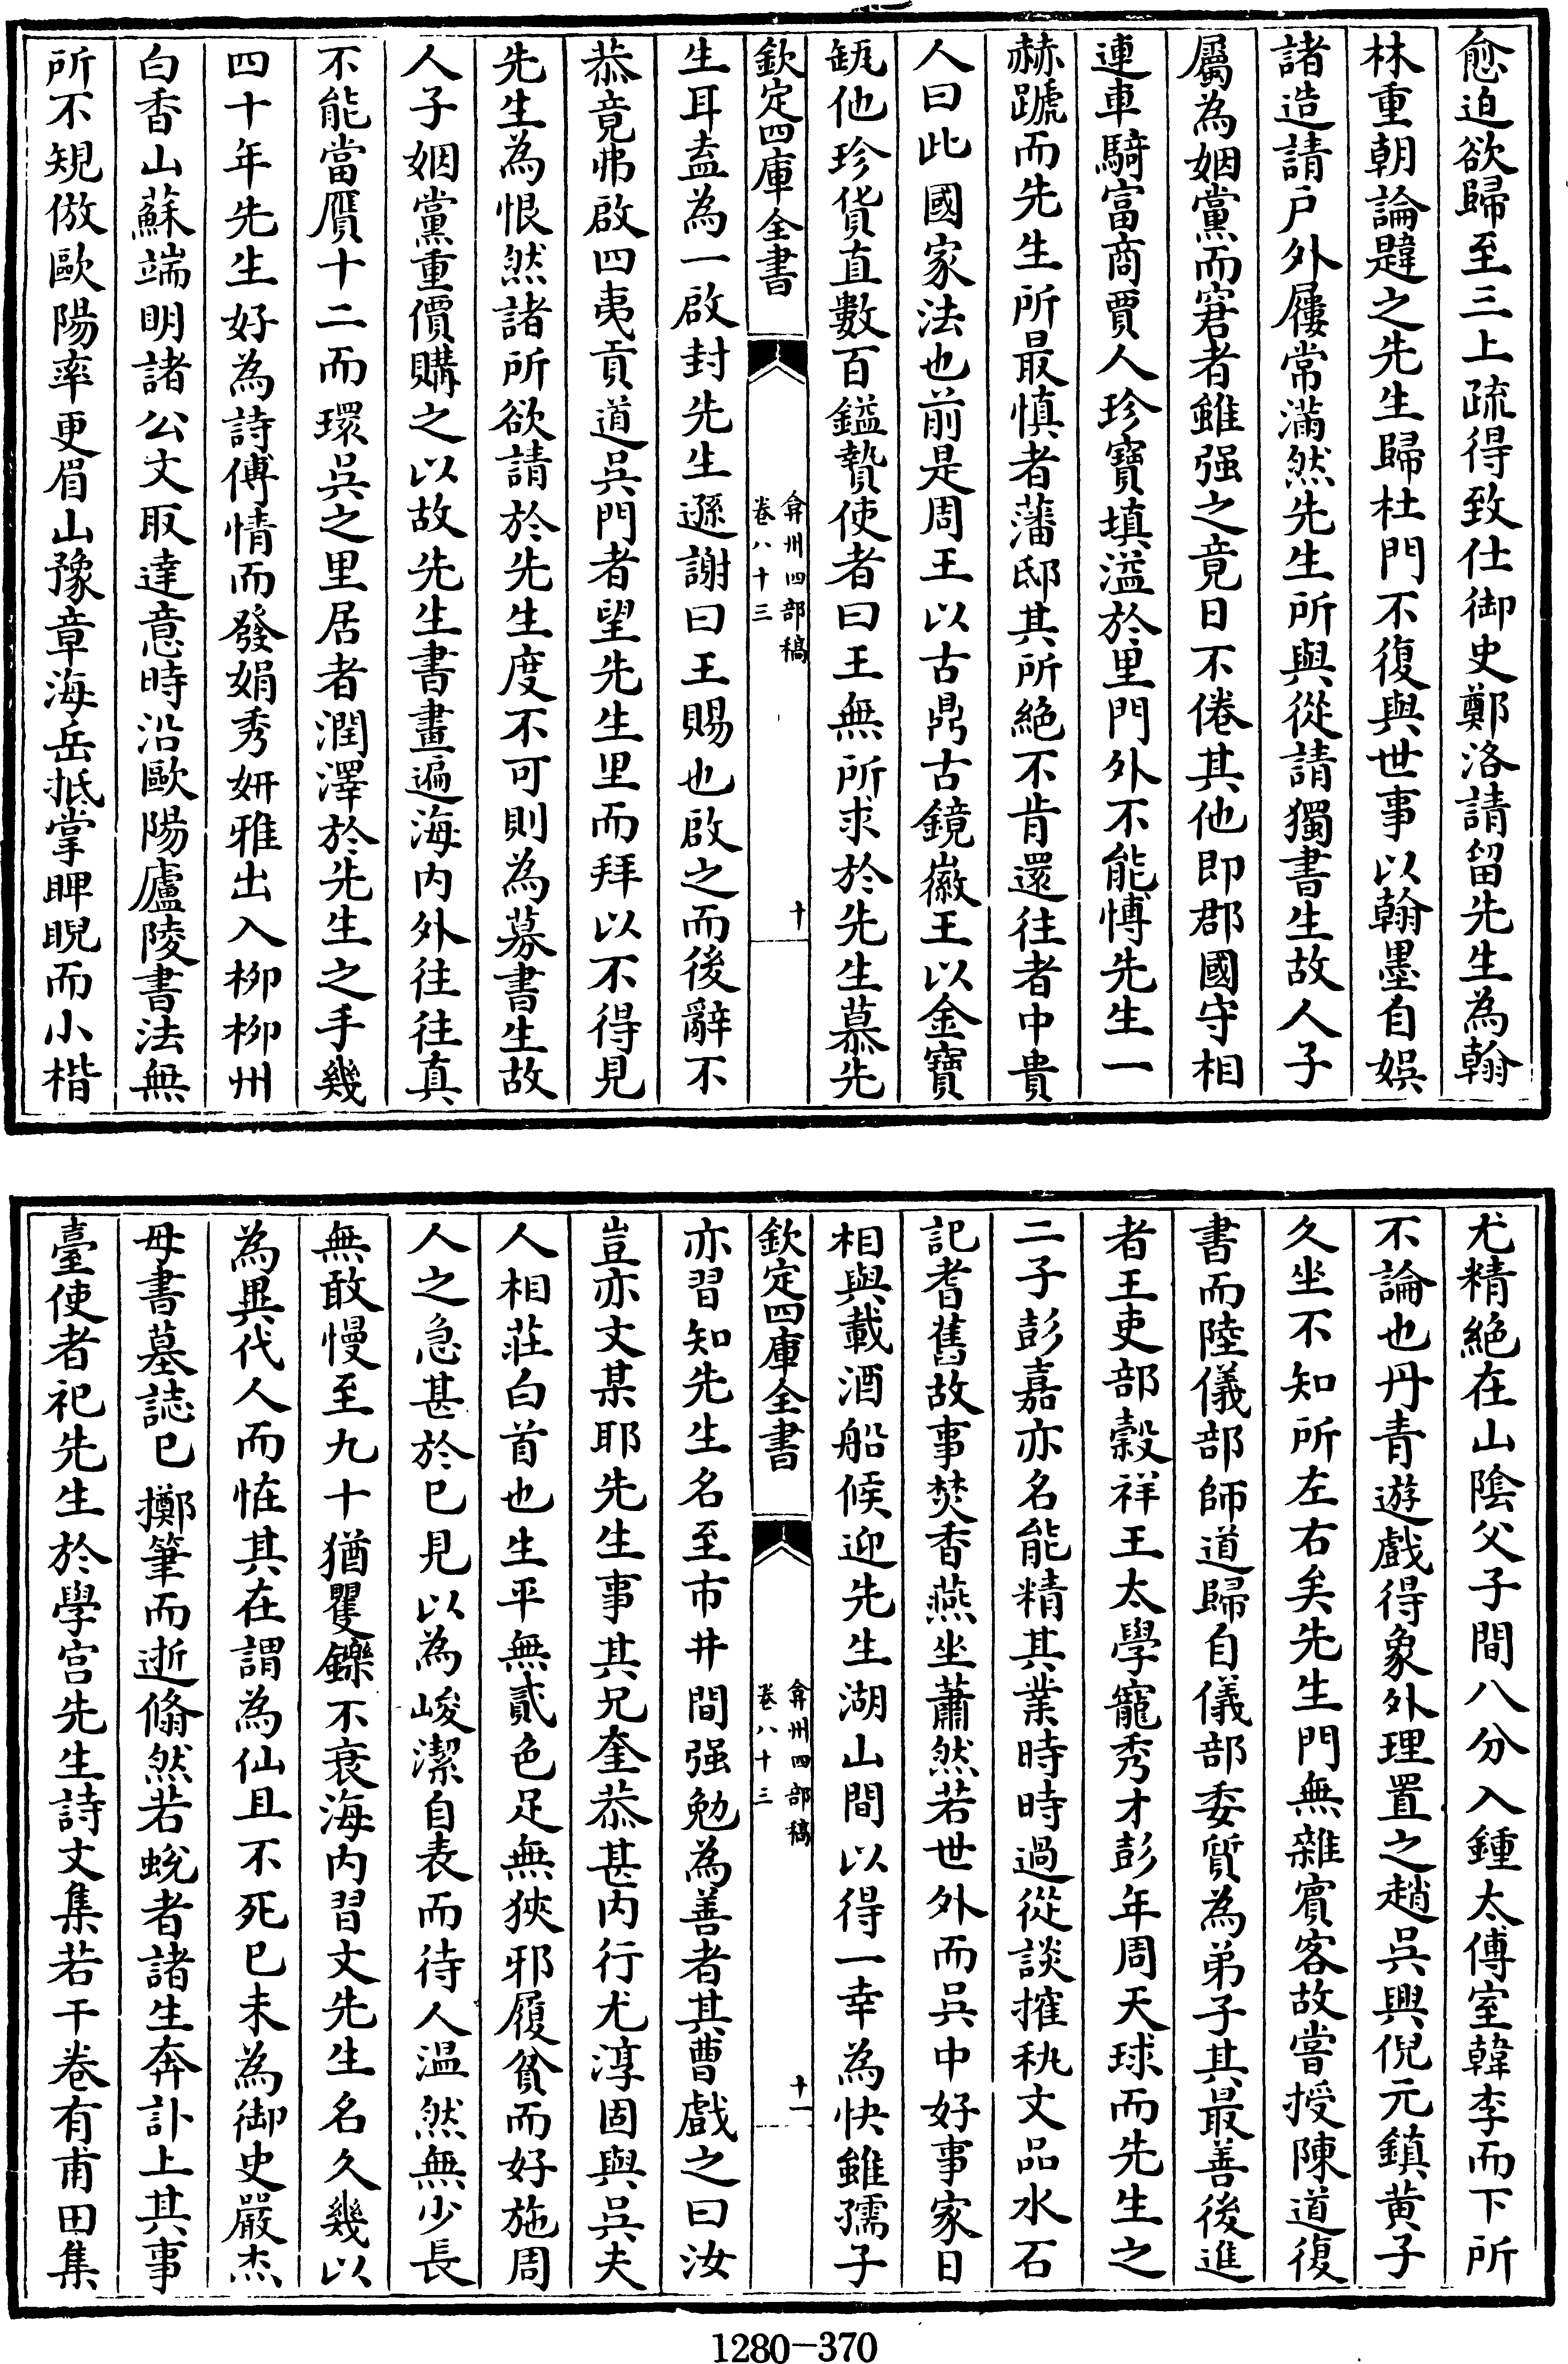 愈迫欲歸至三上疏得致仕御史鄭洛請留先生為翰
林重朝論韙之先生歸杜門不復與世事以翰墨自娛
諸造請戶外屨常滿然先生所與從請獨書生故人子
屬為姻黨而窘者雖强之竟日不倦其他即郡國守相
連車騎富商賈人珍寶填溢於里門外不能博先生一
赫蹏而先生所最慎者藩邸其所絶不肯還往者中貴
人曰此國家法也前是周王以古鼎古鏡徽王以金寶
瓴他珍貨直數百鎰贄使者曰王無所求於先生慕先
欽定四庫全書
弇州四部稿
卷八十三
十
生耳盍為一啟封先生遜謝曰王賜也啟之而後辭不
恭竟弗啟四夷貢道吳門者望先生里而拜以不得見
先生為恨然諸所欲請於先生度不可則為募書生故
人子姻黨重價購之以故先生書畫遍海内外往往真
不能當贗十二而環吳之里居者潤澤於先生之手幾
四十年先生好為詩傅情而發娟秀妍雅出入柳柳州
白香山蘇端明諸公文取達意時沿歐陽廬陵書法無
所不規倣歐陽率更眉山豫章海岳抵掌睥睨而小楷
尤精絶在山陰父子間八分入鍾太傅室韓李而下所
不論也丹青遊戲得象外理置之趙吳興倪元鎮黄子
久坐不知所左右矣先生門無雜賓客故嘗授陳道復
書而陸儀部師道歸自儀部委質為弟子其最善後進
者王吏部穀祥王太學寵秀才彭年周天球而先生之
二子彭嘉亦名能精其業時時過從談搉秇文品水石
記耆舊故事焚香燕坐蕭然若世外而吳中好事家日
相與載酒船候迎先生湖山間以得一幸為快雖孺子
欽定四庫全書
弇州四部稿
卷八十三
十一
亦習知先生名至市井間强勉為善者其曹戲之曰汝
豈亦文某耶先生事其兄奎恭甚内行尤淳固與吳夫
人相莊白首也生平無貳色足無狹邪履貧而好施周
人之急甚於已見以為峻潔自表而待人温然無少長
無敢慢至九十猶矍鑠不衰海内習文先生名久幾以
為異代人而恠其在謂為仙且不死已未為御史嚴杰
母書墓誌已擲筆而逝翛然若蛻者諸生奔訃上其事
臺使者祀先生於學宫先生詩文集若干卷有甫田集
1280-370